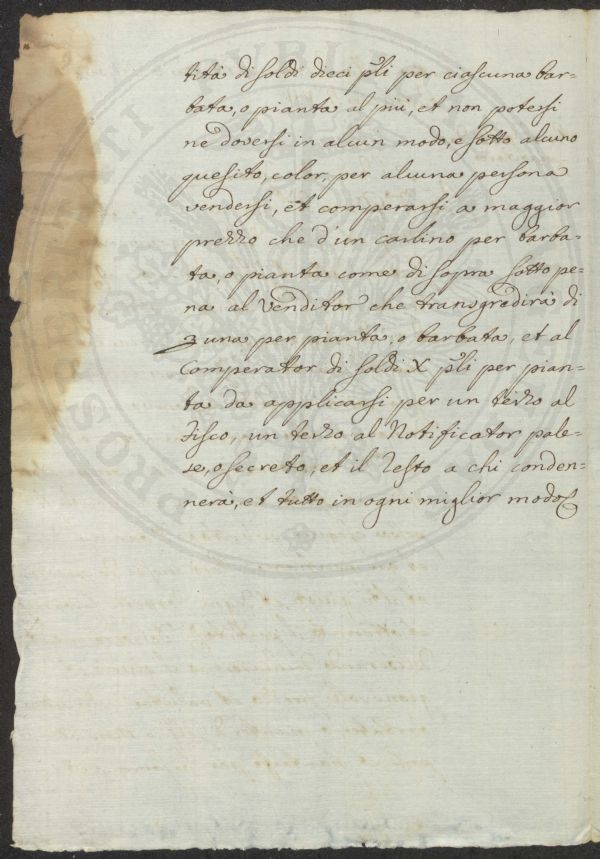 tità di soldi dieci płi per ciascuna bar-
bata, o pianta al più, et non potersi
ne doversi in alcun modo, e sotto alcuno
quesito, color, per alcuna persona
vendersi, et comperarsi a maggior
prezzo che d'un carlino per barba-
ta, o pianta come di sopra sotto pe-
na al Venditor che transgredirà di
una per pianta, o barbata, et al
Comperator di soldi X płi per pian-
ta da applicarsi per un terzo al
Fisco, un terzo al Notificator pale-
se, o secreto, et il resto a chi conden-
nerà, et tutto in ogni miglior modo